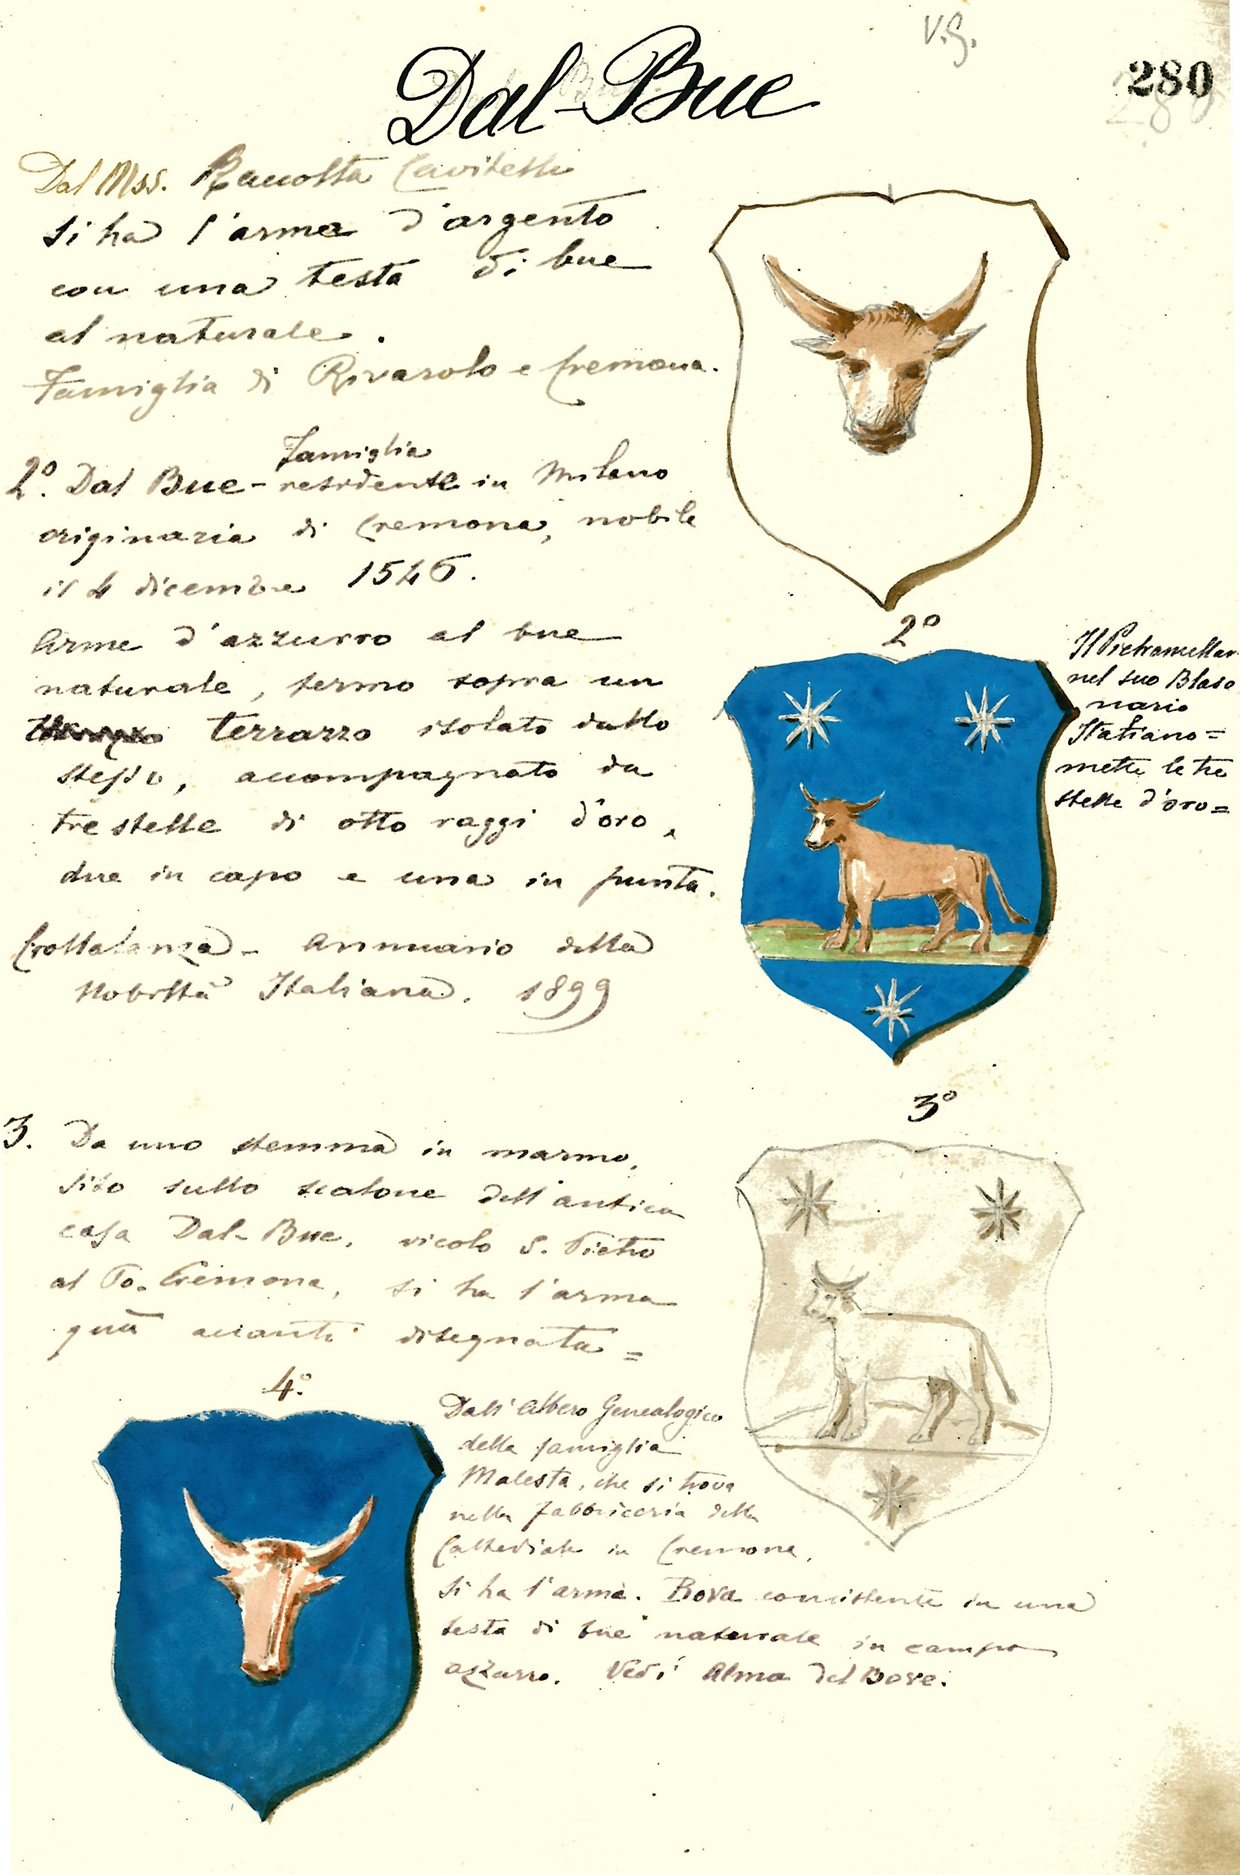 V.G.
280
Dal-Bue
Dal Mss. Raccolta Cavitelli
si ha l'arma d'argento
con una testa di bue
al naturale.
Famiglia di Rivarolo e Cremona.
2º. Dal Bue - famiglia residente in Milano
originaria di Cremona, nobile
il 4 dicembre 1546.
Arme d'azzurro al bue
naturale, fermo sopra un
terrazzo isolato dallo
stesso, accompagnato da
tre stelle di otto raggi d'oro,
due in capo e una in punta.
Crollalanza - Annuario della
Nobiltà Italiana. 1899
2º
Il Pietramellar
nel suo Blaso
nario
Italiano =
mette le tre
stelle d'oro =
3. Da uno stemma in marmo,
sito sullo scalone dell'antica
casa Dal-Bue, vicolo S. Pietro
al Po. Cremona, si ha l'arma
quà accanto disegnata =
3º
4º.
Dall'Albero Genealogico
della famiglia
Malesta, che si trova
nella fabbriceria della
Cattedrale in Cremona,
si ha l'arma. Bova consistente in una
testa di bue naturale in campo
azzurro. Vedi Alma del Bove.